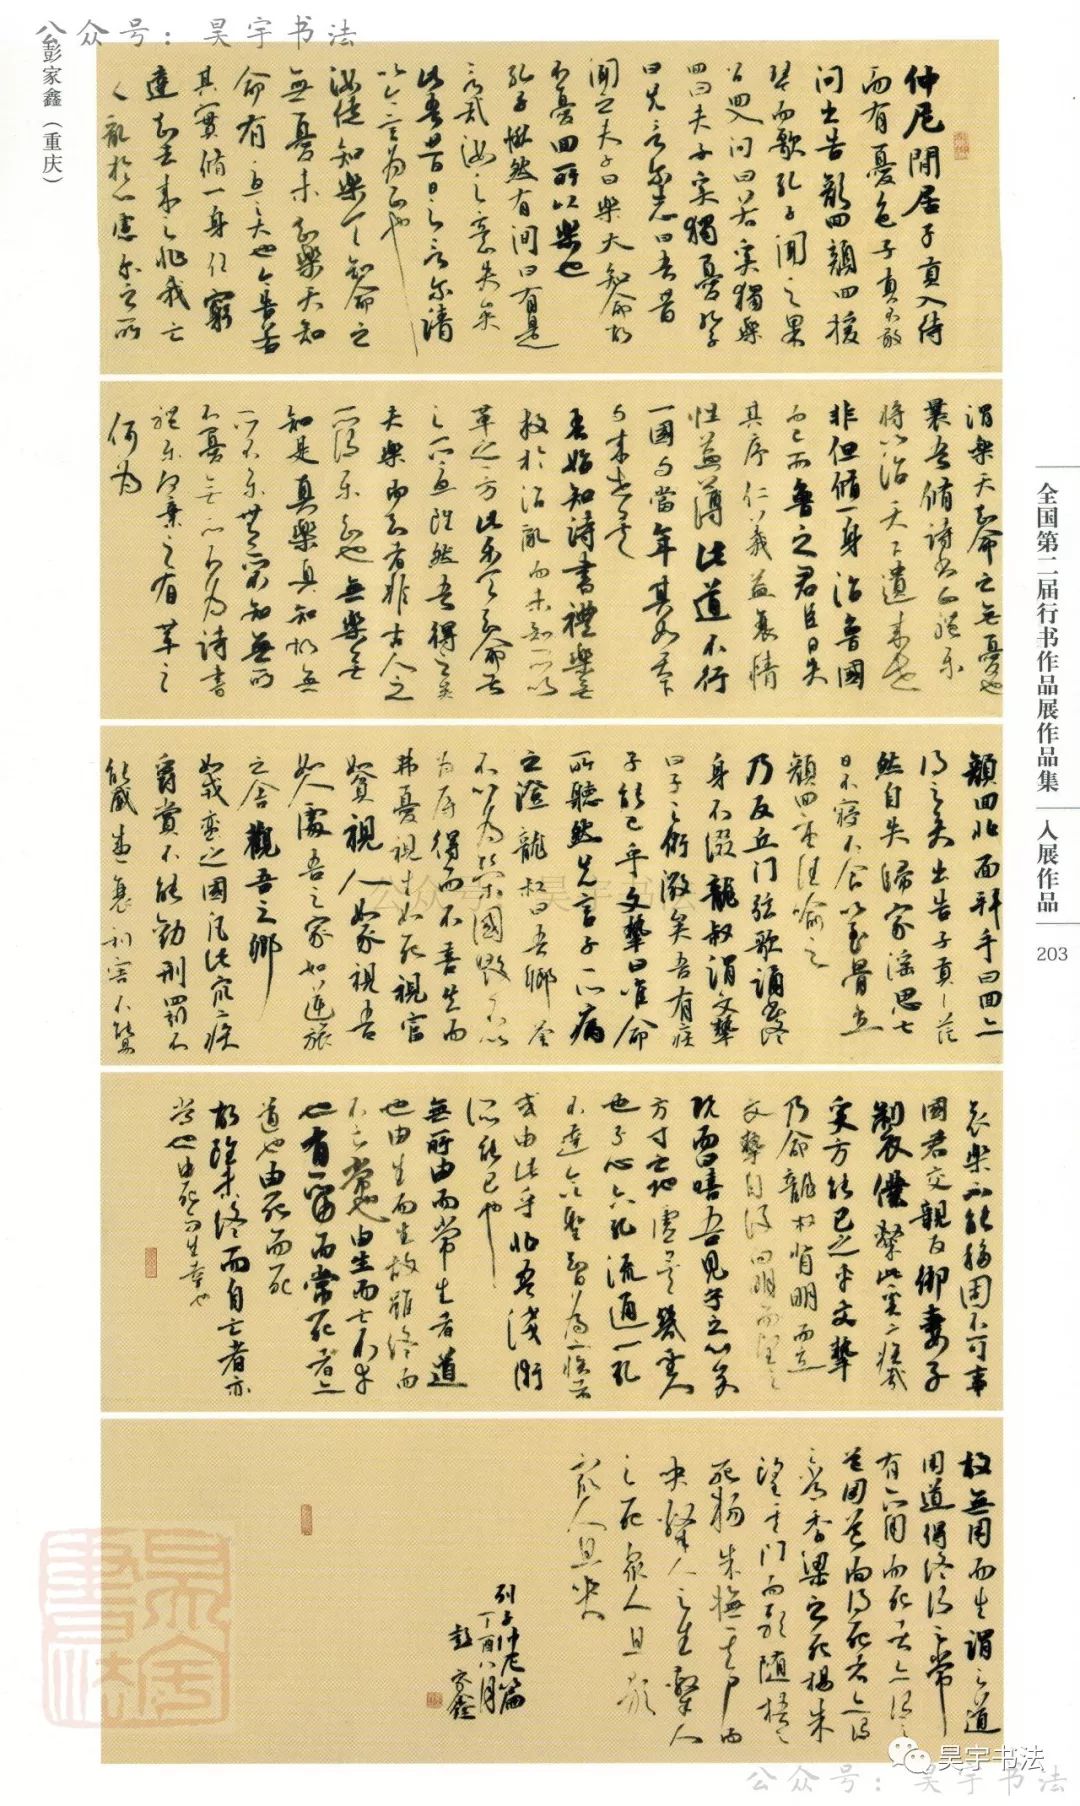 公众号：昊宇书法
彭家鑫（重庆）
仲尼閒居子貢入侍
而有憂色子貢不敢
問出告顏回顏回援
琴而歌孔子聞之果
召回入問曰若奚獨樂
回曰夫子奚獨憂孔子
曰先言爾志曰吾昔
聞之夫子曰樂天知命故
不憂回所以樂也
孔子愀然有間曰有是
言哉汝之意失矣
此吾昔日之言爾請
以今言為正也
汝徒知樂天知命之
無憂未知樂天知
命有憂之大也今告若
其實脩一身任窮
達知去來之非我亡
變亂於心慮爾之所
謂樂天知命之無憂也
曩吾脩詩書正禮樂
將以治天下遺來世
非但脩一身治魯國
而已而魯之君臣日失
其序仁義益衰情
性益薄此道不行
一國與當年其如天下
與來世矣
吾始知詩書禮樂無
救於治亂而未知所以
革之之方此樂天知命者
之所憂雖然吾得之矣
夫樂而知者非古人之
所謂樂知也無樂無
知是真樂真知故無
所不樂無所不知無所
不憂無所不為詩書
禮樂何棄之有革之
何為
顏回北面拜手曰回亦
得之矣出告子貢子貢茫
然自失歸家淫思七
日不寢不食以至骨立
顏回重往喻之
乃反丘門弦歌誦書終
身不輟龍叔謂文摯
曰子之術微矣吾有疾
子能已乎文摯曰唯命
所聽然先言子所病
之證龍叔曰吾鄉譽
不以為榮國毀不以
為辱得而不喜失而
弗憂視生如死視富
如貧視人如豕視吾
如人處吾之家如逆旅
之舍觀吾之鄉
如戎蠻之國凡此眾疾
爵賞不能勸刑罰不
能威盛衰利害不能易
哀樂不能移固不可事
國君交親友御妻子
制僕隸此奚疾哉
奚方能已之乎文摯
乃命龍叔背明而立
文摯自後向明而望之
既而曰嘻吾見子之心矣
方寸之地虛矣幾聖人
也子心六孔流通一孔
不達今以聖智為疾者
或由此乎非吾淺術
所能已也
無所由而常生者道
也由生而生故雖終而
不亡常也由生而亡不幸
也有所由而常死者亦
道也由死而死
故雖未終而自亡者亦
常也由死而生幸也
故無用而生謂之道
用道得終謂之常
有所用而死者亦謂之
道用道而得死者亦謂
之常季梁之死楊朱
望其門而歌隨梧之
死楊朱撫其尸而
哭隸人之生隸人
之死眾人且歌
眾人且哭
列子仲尼篇
丁酉八月
彭家鑫
全国第二届行书作品展作品集
入展作品
203
公众号：昊宇书法
昊宇书法
公众号：昊宇书法